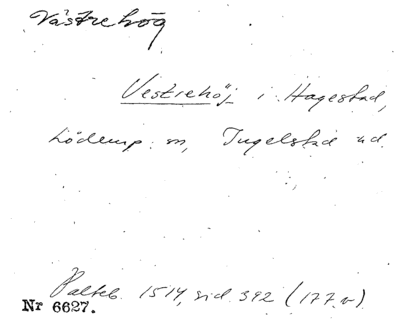 Västrehög
Vestrehöj i Hagestad,
Löderup sn, Ingelstad hd.
Palteb. 1514, sid 392 (177 v).
Nr 6627.